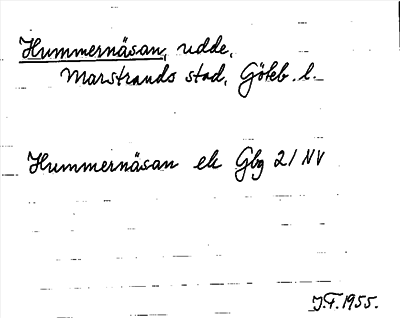 Hummernäsan, udde,
Marstrands stad, Göteb. l.
Hummernäsan ek Gbg 21 NV
J.F. 1955.